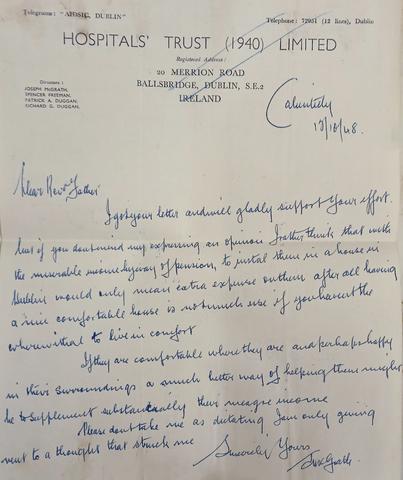 Telegrams: "AJOSIC, DUBLIN"
Telephone: 72951 (12 lines), Dublin
HOSPITALS' TRUST (1940) LIMITED
Registered Address:
20 MERRION ROAD
BALLSBRIDGE, DUBLIN, S.E.2
IRELAND
Directors:
JOSEPH McGRATH.
SPENCER FREEMAN.
PATRICK A. DUGGAN.
RICHARD G. DUGGAN.
Cabinteely
13/10/48.
Dear Revd Father
I got your letter and will gladly support your effort.
but if you dont mind my expressing an opinion I rather think that with
the miserable income by way of pension, to instal them in a house in
Dublin would only mean extra expense on them after all having
a nice comfortable house is not much use if you havent the
wherewithal to live in comfort
If they are comfortable where they are and perhaps happy
in their surroundings a much better way of helping them might
be to supplement substantially their meagre income
Please dont take me as dictating I am only giving
vent to a thought that struck me
Sincerely Yours